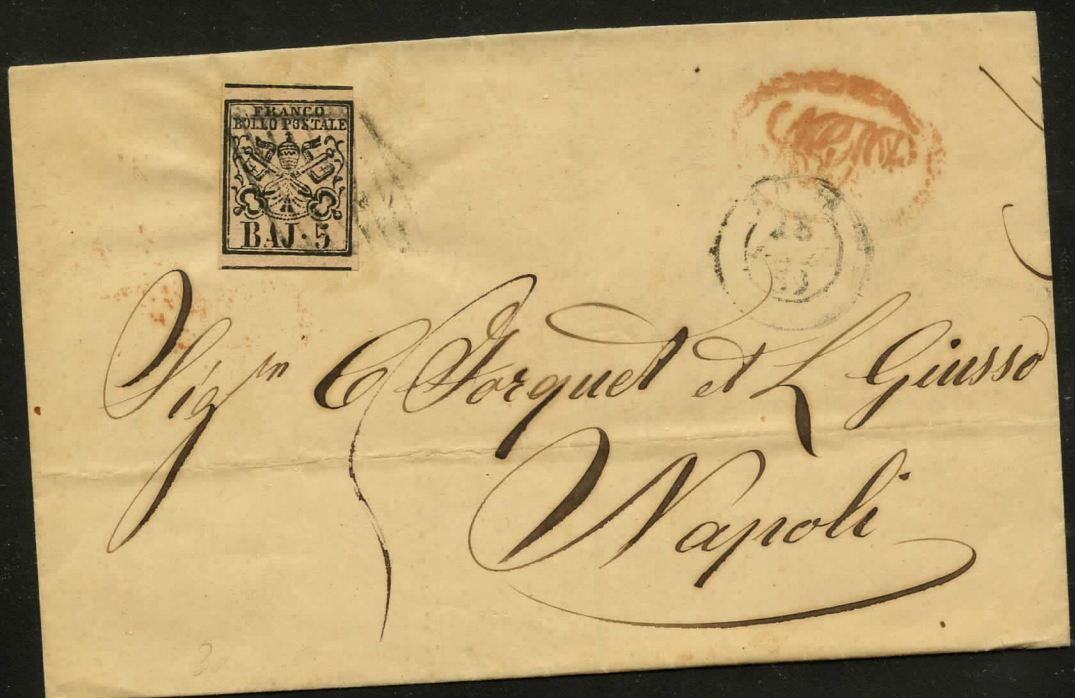 FRANCO
BOLLO POSTALE
BAJ·5
Sig.ri C Forquet et L Giusso
Napoli